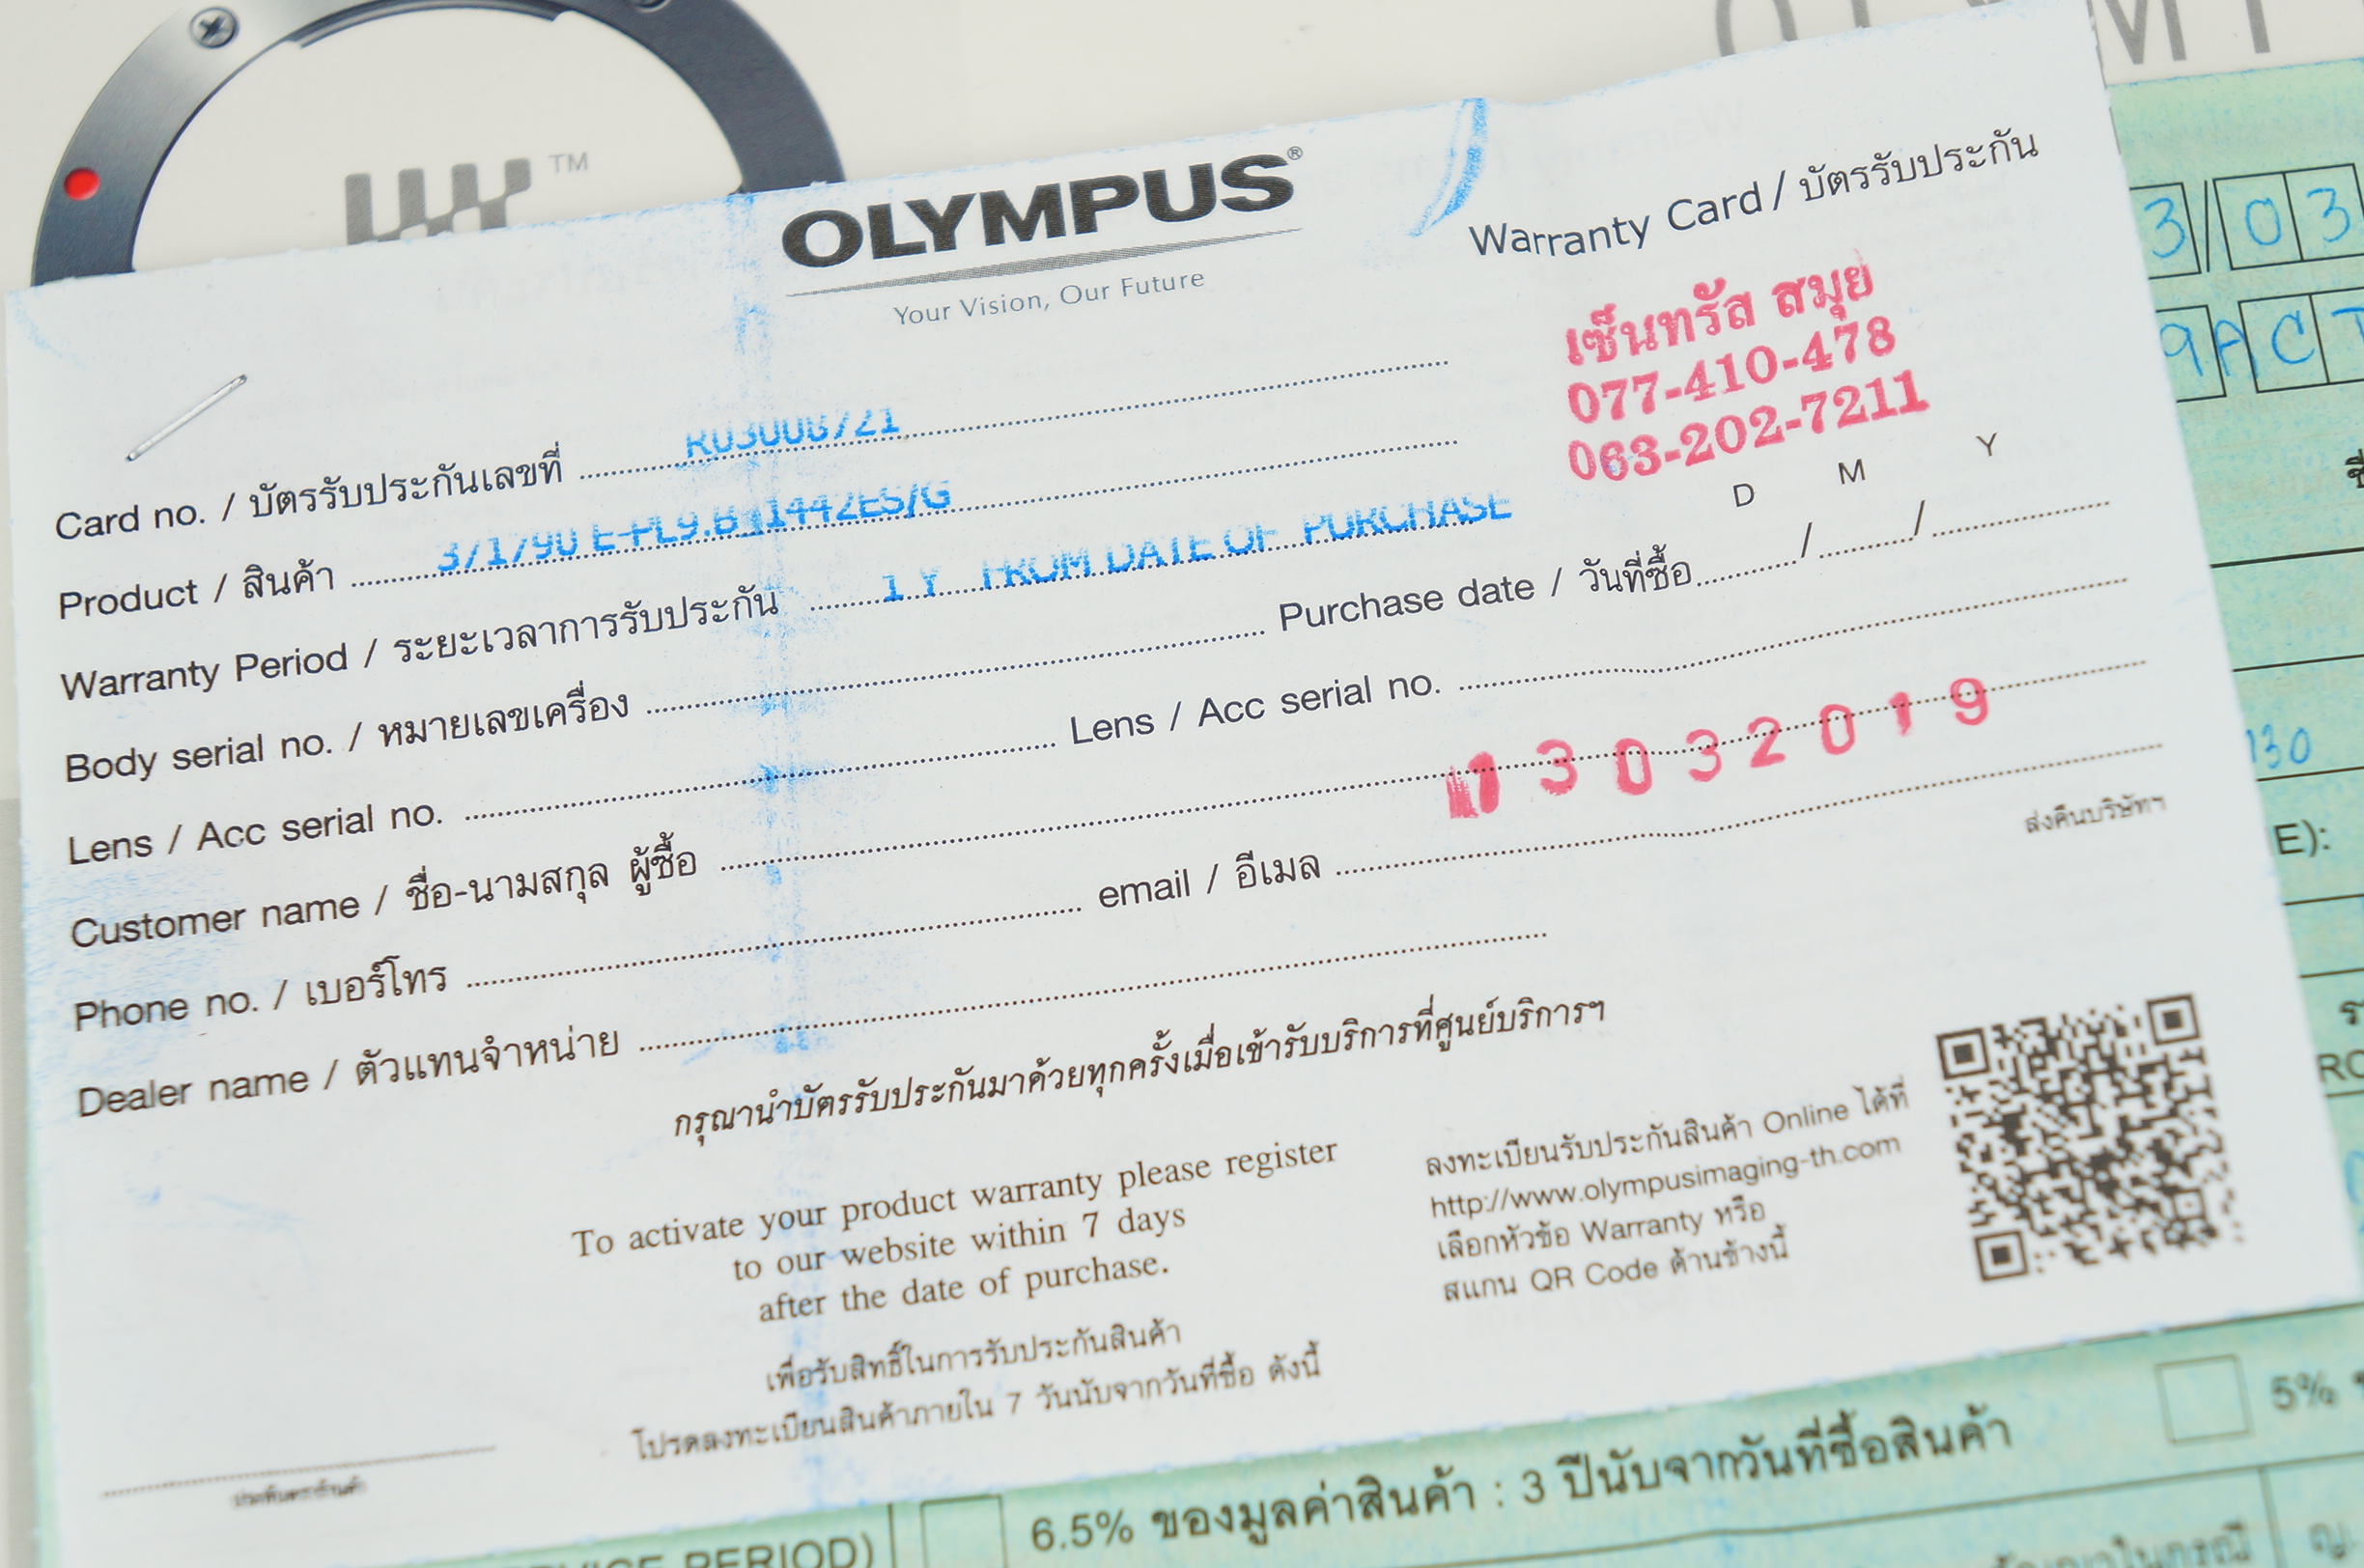 TM
OLYMPUS®
Your Vision, Our Future
Warranty Card / บัตรรับประกัน
เซ็นทรัล สมุย
077-410-478
063-202-7211
D M Y
Card no. / บัตรรับประกันเลขที่
Product / สินค้า
Warranty Period / ระยะเวลาการรับประกัน 1 Y FROM DATE OF PURCHASE
Body serial no. / หมายเลขเครื่อง Purchase date / วันที่ซื้อ / /
Lens / Acc serial no. Lens / Acc serial no.
13032019
Customer name / ชื่อ-นามสกุล ผู้ซื้อ
Phone no. / เบอร์โทร email / อีเมล
ส่งคืนบริษัทฯ
Dealer name / ตัวแทนจำหน่าย
กรุณานำบัตรรับประกันมาด้วยทุกครั้งเมื่อเข้ารับบริการที่ศูนย์บริการฯ
To activate your product warranty please register
to our website within 7 days
after the date of purchase.
เพื่อรับสิทธิ์ในการรับประกันสินค้า
โปรดลงทะเบียนสินค้าภายใน 7 วันนับจากวันที่ซื้อ ดังนี้
ลงทะเบียนรับประกันสินค้า Online ได้ที่
http://www.olympusimaging-th.com
เลือกหัวข้อ Warranty หรือ
สแกน QR Code ด้านข้างนี้
3/03
9ACT
130
E):
5%
6.5% ของมูลค่าสินค้า : 3 ปีนับจากวันที่ซื้อสินค้า
PERIOD)